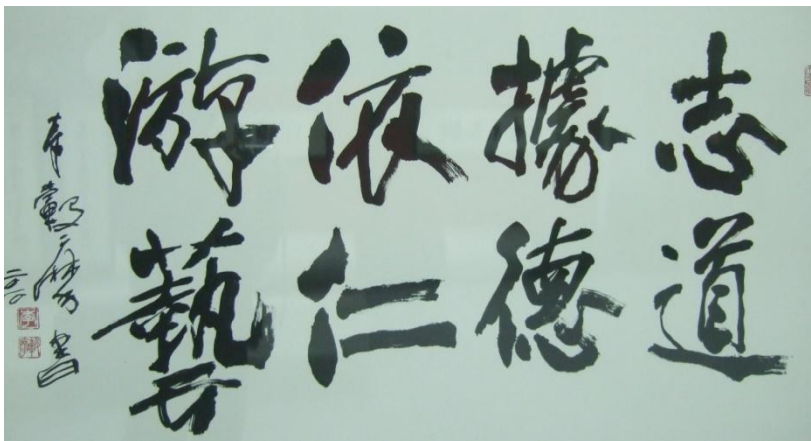 志道
據德
依仁
游藝
書